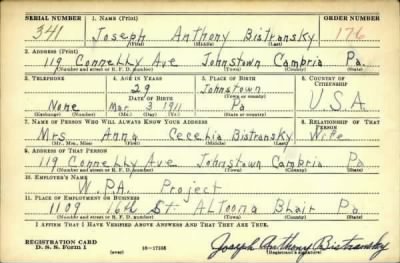 SERIAL NUMBER 1. NAME (Print) ORDER NUMBER
341 Joseph Anthony Bistransky 176
(First) (Middle) (Last)
2. ADDRESS (Print)
119 Connelly Ave Johnstown Cambria Pa.
(Number and street or R. F. D. number) (Town) (County) (State)
3. TELEPHONE 4. AGE IN YEARS 5. PLACE OF BIRTH 6. COUNTRY OF CITIZENSHIP
29 Johnstown
DATE OF BIRTH (Town or county)
None Mar 3 1911 Pa U.S.A.
(Exchange) (Number) (Mo.) (Day) (Yr.) (State or country)
7. NAME OF PERSON WHO WILL ALWAYS KNOW YOUR ADDRESS 8. RELATIONSHIP OF THAT PERSON
Mrs Anna Cecelia Bistransky Wife
(Mr., Mrs., Miss) (First) (Middle) (Last)
9. ADDRESS OF THAT PERSON
119 Connelly Ave Johnstown Cambria Pa
(Number and street or R. F. D. number) (Town) (County) (State)
10. EMPLOYER'S NAME
W.P.A. Project
11. PLACE OF EMPLOYMENT OR BUSINESS
1109 16th St. Altoona Blair Pa
(Number and street or R. F. D. number) (Town) (County) (State)
I AFFIRM THAT I HAVE VERIFIED ABOVE ANSWERS AND THAT THEY ARE TRUE.
REGISTRATION CARD
D. S. S. Form 1 (over) 16—17105 Joseph Anthony Bistransky
(Registrant's signature)